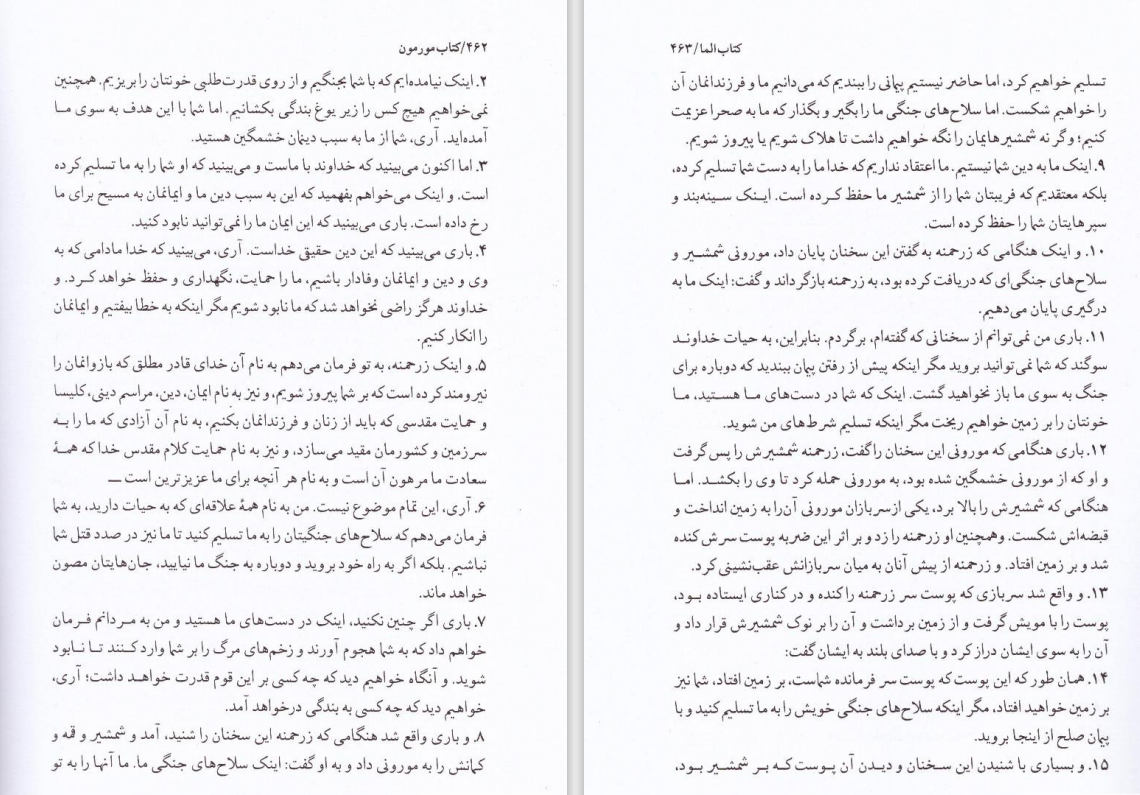 ۴۶۲/کتاب مورمون
۲. اینک نیامده‌ایم که با شما بجنگیم و از روی قدرت‌طلبی خونتان را بریزیم. همچنین
نمی‌خواهیم هیچ کس را زیر یوغ بندگی بکشانیم. اما شما با این هدف به سوی ما
آمده‌اید. آری، شما از ما به سبب دینمان خشمگین هستید.
۳. اما اکنون می‌بینید که خداوند با ماست و می‌بینید که او شما را به ما تسلیم کرده
است. و اینک می‌خواهم بفهمید که این به سبب دین ما و ایمانمان به مسیح برای ما
رخ داده است. باری می‌بینید که این ایمان ما را نمی‌توانید نابود کنید.
۴. باری می‌بینید که این دین حقیقی خداست. آری، می‌بینید که خدا مادامی که به
وی و دین و ایمانمان وفادار باشیم، ما را حمایت، نگهداری و حفظ خواهد کرد. و
خداوند هرگز راضی نخواهد شد که ما نابود شویم مگر اینکه به خطا بیفتیم و ایمانمان
را انکار کنیم.
۵. و اینک زرحمنه، به تو فرمان می‌دهم به نام آن خدای قادر مطلق که بازوانمان را
نیرومند کرده است که بر شما پیروز شویم، و نیز به نام ایمان، دین، مراسم دینی، کلیسا
و حمایت مقدسی که باید از زنان و فرزندانمان بکنیم، به نام آن آزادی که ما را به
سرزمین و کشورمان مقید می‌سازد، و نیز به نام حمایت کلام مقدس خدا که همهٔ
سعادت ما مرهون آن است و به نام هر آنچه برای ما عزیزترین است ـــ
۶. آری، این تمام موضوع نیست. من به نام همهٔ علاقه‌ای که به حیات دارید، به شما
فرمان می‌دهم که سلاح‌های جنگیتان را به ما تسلیم کنید تا ما نیز در صدد قتل شما
نباشیم. بلکه اگر به راه خود بروید و دوباره به جنگ ما نیایید، جان‌هایتان مصون
خواهد ماند.
۷. باری اگر چنین نکنید، اینک در دست‌های ما هستید و من به مردانم فرمان
خواهم داد که به شما هجوم آورند و زخم‌های مرگ را بر شما وارد کنند تا نابود
شوید. و آنگاه خواهیم دید که چه کسی بر این قوم قدرت خواهد داشت؛ آری،
خواهیم دید که چه کسی به بندگی درخواهد آمد.
۸. و باری واقع شد هنگامی که زرحمنه این سخنان را شنید، آمد و شمشیر و قمه و
کمانش را به مورونی داد و به او گفت: اینک سلاح‌های جنگی ما. ما آنها را به تو
کتاب الما/۴۶۳
تسلیم خواهیم کرد، اما حاضر نیستیم پیمانی را ببندیم که می‌دانیم ما و فرزندانمان آن
را خواهیم شکست. اما سلاح‌های جنگی ما را بگیر و بگذار که ما به صحرا عزیمت
کنیم؛ و گر نه شمشیرهایمان را نگه خواهیم داشت تا هلاک شویم یا پیروز شویم.
۹. اینک ما به دین شما نیستیم. ما اعتقاد نداریم که خدا ما را به دست شما تسلیم کرده،
بلکه معتقدیم که فریبتان شما را از شمشیر ما حفظ کرده است. اینک سینه‌بند و
سپرهایتان شما را حفظ کرده است.
۱۰. و اینک هنگامی که زرحمنه به گفتن این سخنان پایان داد، مورونی شمشیر و
سلاح‌های جنگی‌ای که دریافت کرده بود، به زرحمنه بازگرداند و گفت: اینک ما به
درگیری پایان می‌دهیم.
۱۱. باری من نمی‌توانم از سخنانی که گفته‌ام، برگردم. بنابراین، به حیات خداوند
سوگند که شما نمی‌توانید بروید مگر اینکه پیش از رفتن پیمان ببندید که دوباره برای
جنگ به سوی ما باز نخواهید گشت. اینک که شما در دست‌های ما هستید، ما
خونتان را بر زمین خواهیم ریخت مگر اینکه تسلیم شرط‌های من شوید.
۱۲. باری هنگامی که مورونی این سخنان را گفت، زرحمنه شمشیرش را پس گرفت
و او که از مورونی خشمگین شده بود، به مورونی حمله کرد تا وی را بکشد. اما
هنگامی که شمشیرش را بالا برد، یکی از سربازان مورونی آن را به زمین انداخت و
قبضه‌اش شکست. و همچنین او زرحمنه را زد و بر اثر این ضربه پوست سرش کنده
شد و بر زمین افتاد. و زرحمنه از پیش آنان به میان سربازانش عقب‌نشینی کرد.
۱۳. و واقع شد سربازی که پوست سر زرحمنه را کنده و در کناری ایستاده بود،
پوست را با مویش گرفت و از زمین برداشت و آن را بر نوک شمشیرش قرار داد و
آن را به سوی ایشان دراز کرد و با صدای بلند به ایشان گفت:
۱۴. همان طور که این پوست که پوست سر فرمانده شماست، بر زمین افتاد، شما نیز
بر زمین خواهید افتاد، مگر اینکه سلاح‌های جنگی خویش را به ما تسلیم کنید و با
پیمان صلح از اینجا بروید.
۱۵. و بسیاری با شنیدن این سخنان و دیدن آن پوست که بر شمشیر بود،